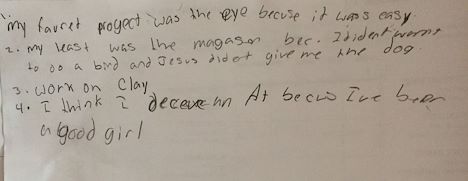 1. my favret progect was the eye becuse it was easy.
2. my least was the magason bec. I dident wornt
to do a bird and Jesus didet give me the dog.
3. work on Clay
4. I think I deceve an At becus I've been
a good girl